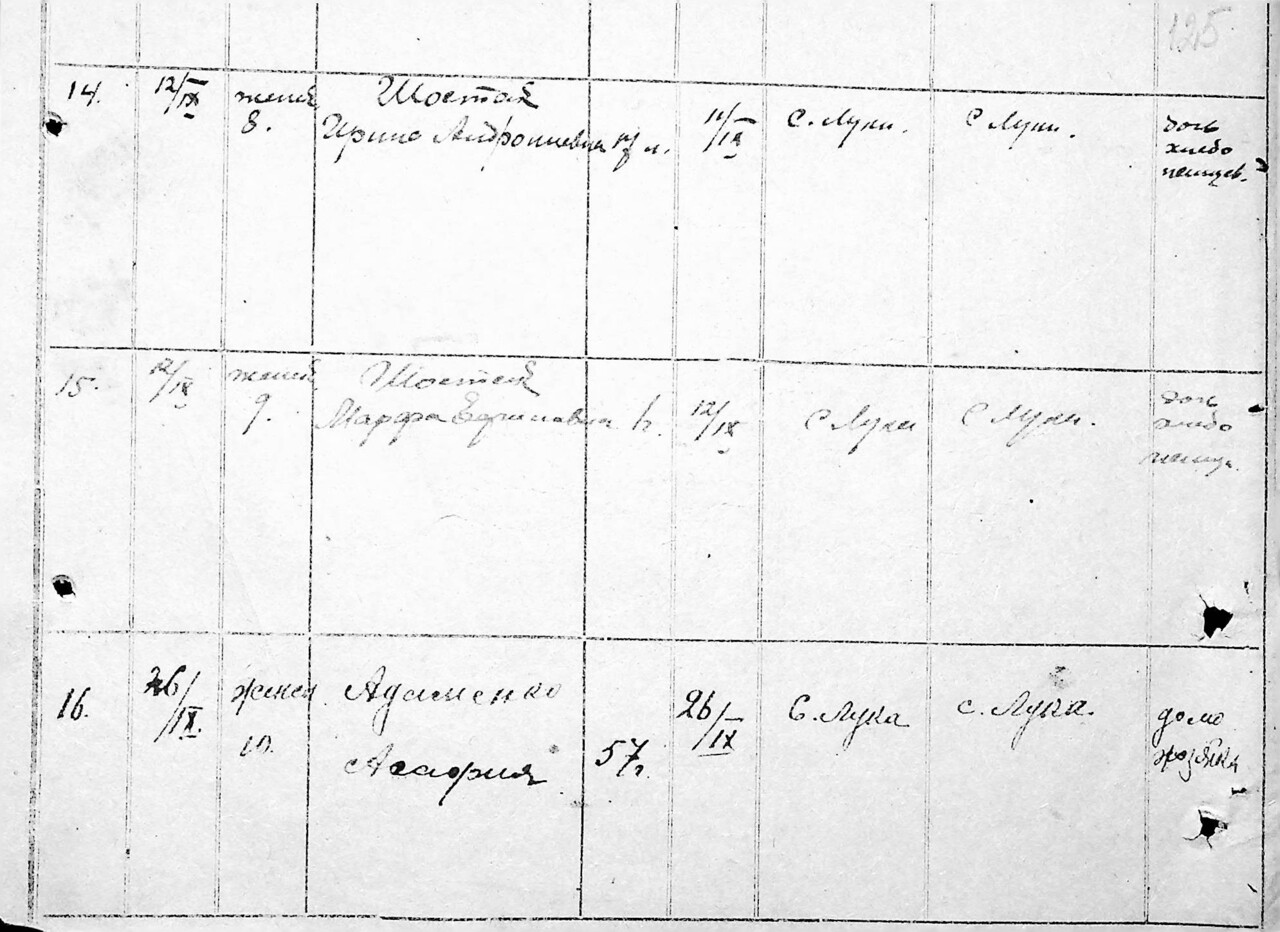 125
14. 12/IX женск 8. Шостак
Ирина Андрониевна 17 л. 11/IX с. Луки. с Луки. дочь
хлебо
пашцев.
15. 12/IX женск 9. Шостак
Марфа 1 г. 12/IX с Луки с Луки. дочь
хлебо
16. 26/IX. женск 10. Адаменко 26/IX С. Лука с. Лука. домо
57 г. хозяйка